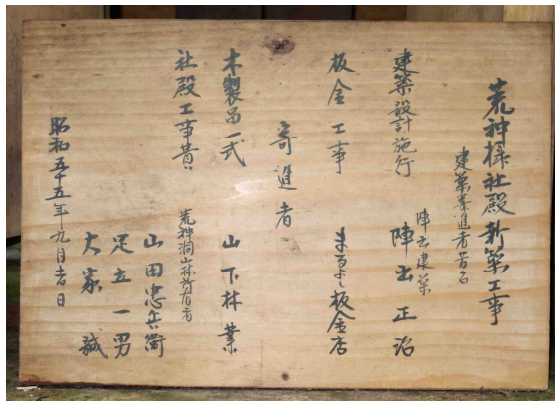 荒神様社殿新築工事
建築寄進者芳名
建築設計施行
陣出建築
陣出正治
板金工事
まるよし板金店
寄進者
木製品一式
山下林業
社殿工事費
荒神洞山林所有者
山田忠兵衛
足立一男
大家誠
昭和五十五年九月吉日